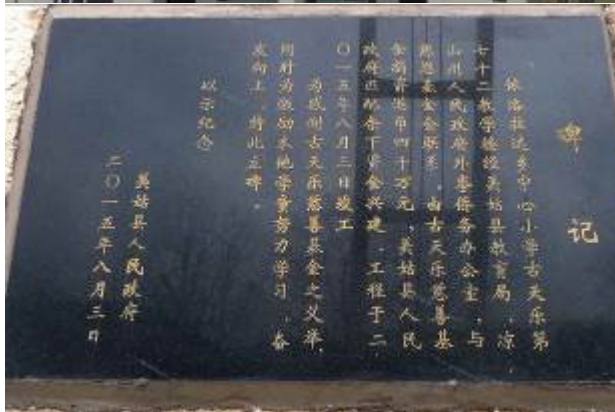 碑记
依洛拉达乡中心小学古天乐第
七十二教学楼经美姑县教育局、凉
山州人民政府外事侨务办公室、与
慈恩基金会联系,由古天乐慈善基
金捐资港币四十万元、美姑县人民
政府匹配余下资金兴建,工程于二
〇一五年八月三日竣工
为感谢古天乐慈善基金之义举,
同时为激励本地学童努力学习、奋
发向上,特此立碑。
以示纪念
美姑县人民政府
二〇一五年八月三日